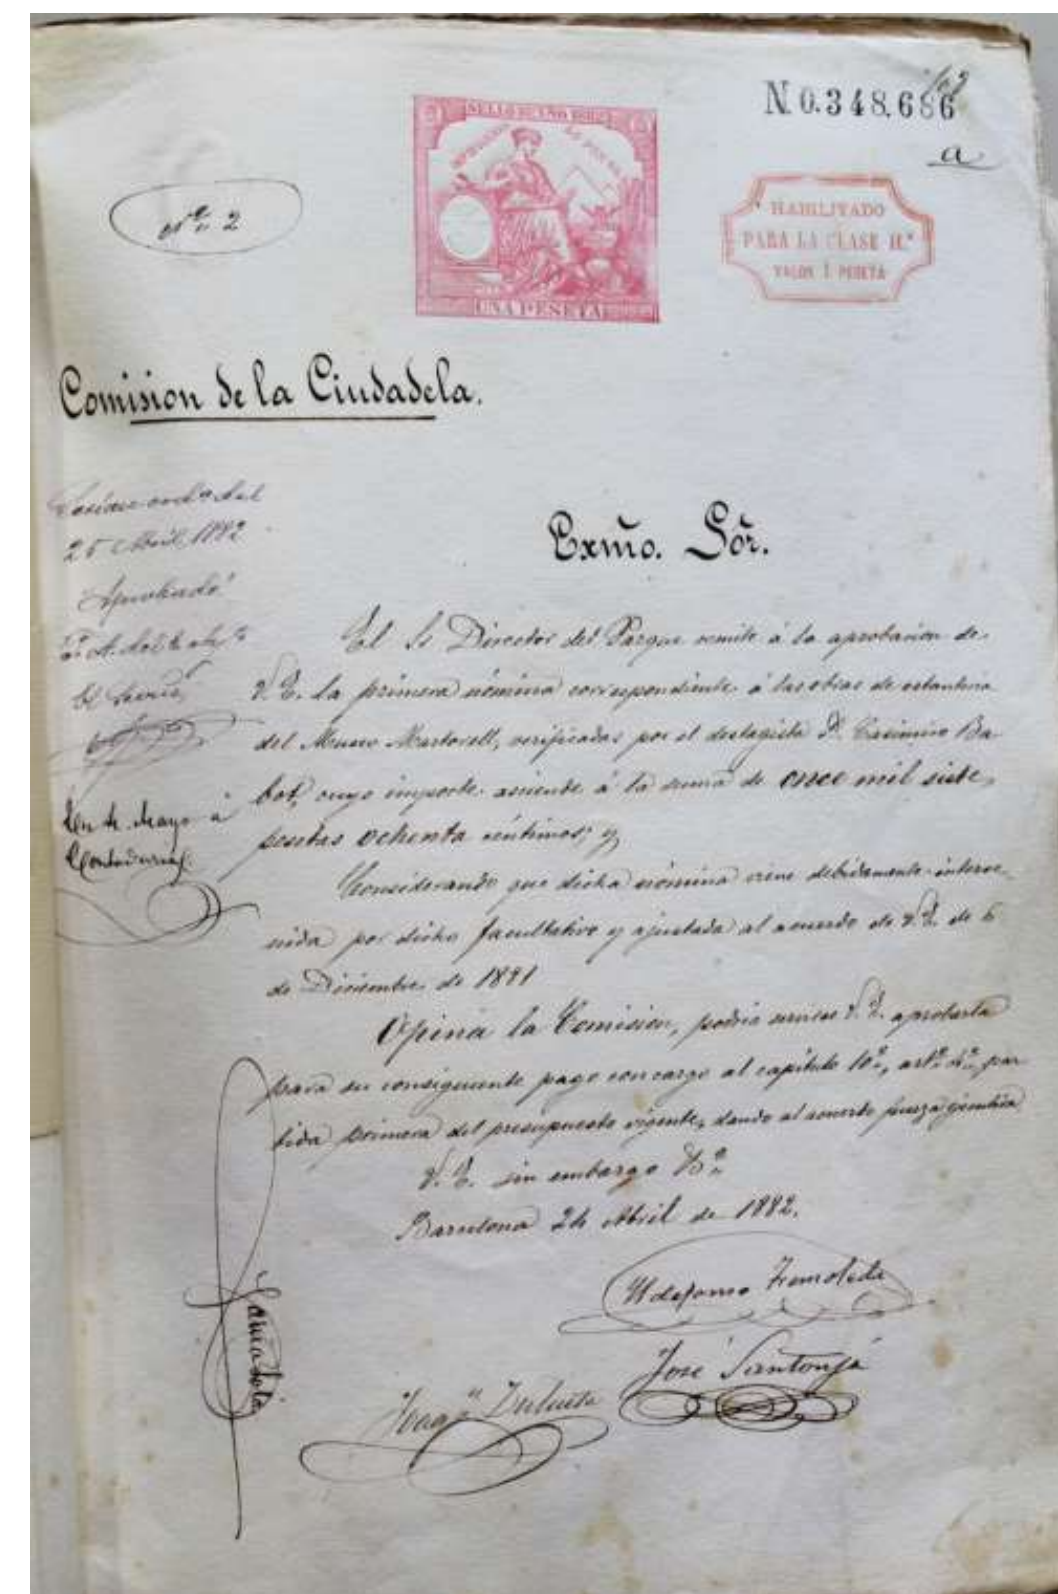 109
N. 0.348,686
a
SELLO DE UNA PESETA
UNA PESETA
HABILITADO
PARA LA CLASE 11.ª
VALOR 1 PESETA
Nº 2
Comision de la Ciudadela.
Exmo. Sôr.
25 Abril 1882
Aprobado
En 4. Mayo á
Contaduría.
El Sr Director del Parque remite á la aprobacion de
V. E. la primera nómina correspondiente á las obras de estanteria
del Museo Martorell, verificadas por el destagista D. Casimiro Ba-
bot, cuyo importe asciende á la suma de once mil siete
pesetas ochenta céntimos; y
Considerando que dicha nómina viene debidamente interve-
nida por dicho facultativo y ajustada al acuerdo de V. E. de 6
de Diciembre de 1881
Opina la Comision, podria servirse V. E. aprobarla
para su consiguiente pago con cargo al capítulo 10º, artº 4º par
tida primera del presupuesto vigente, dando al acuerdo fuerza ejecutiva
V. E. sin embargo
Barcelona 24 Abril de 1882.
Ildefonso Tremoleda
José Santonjá